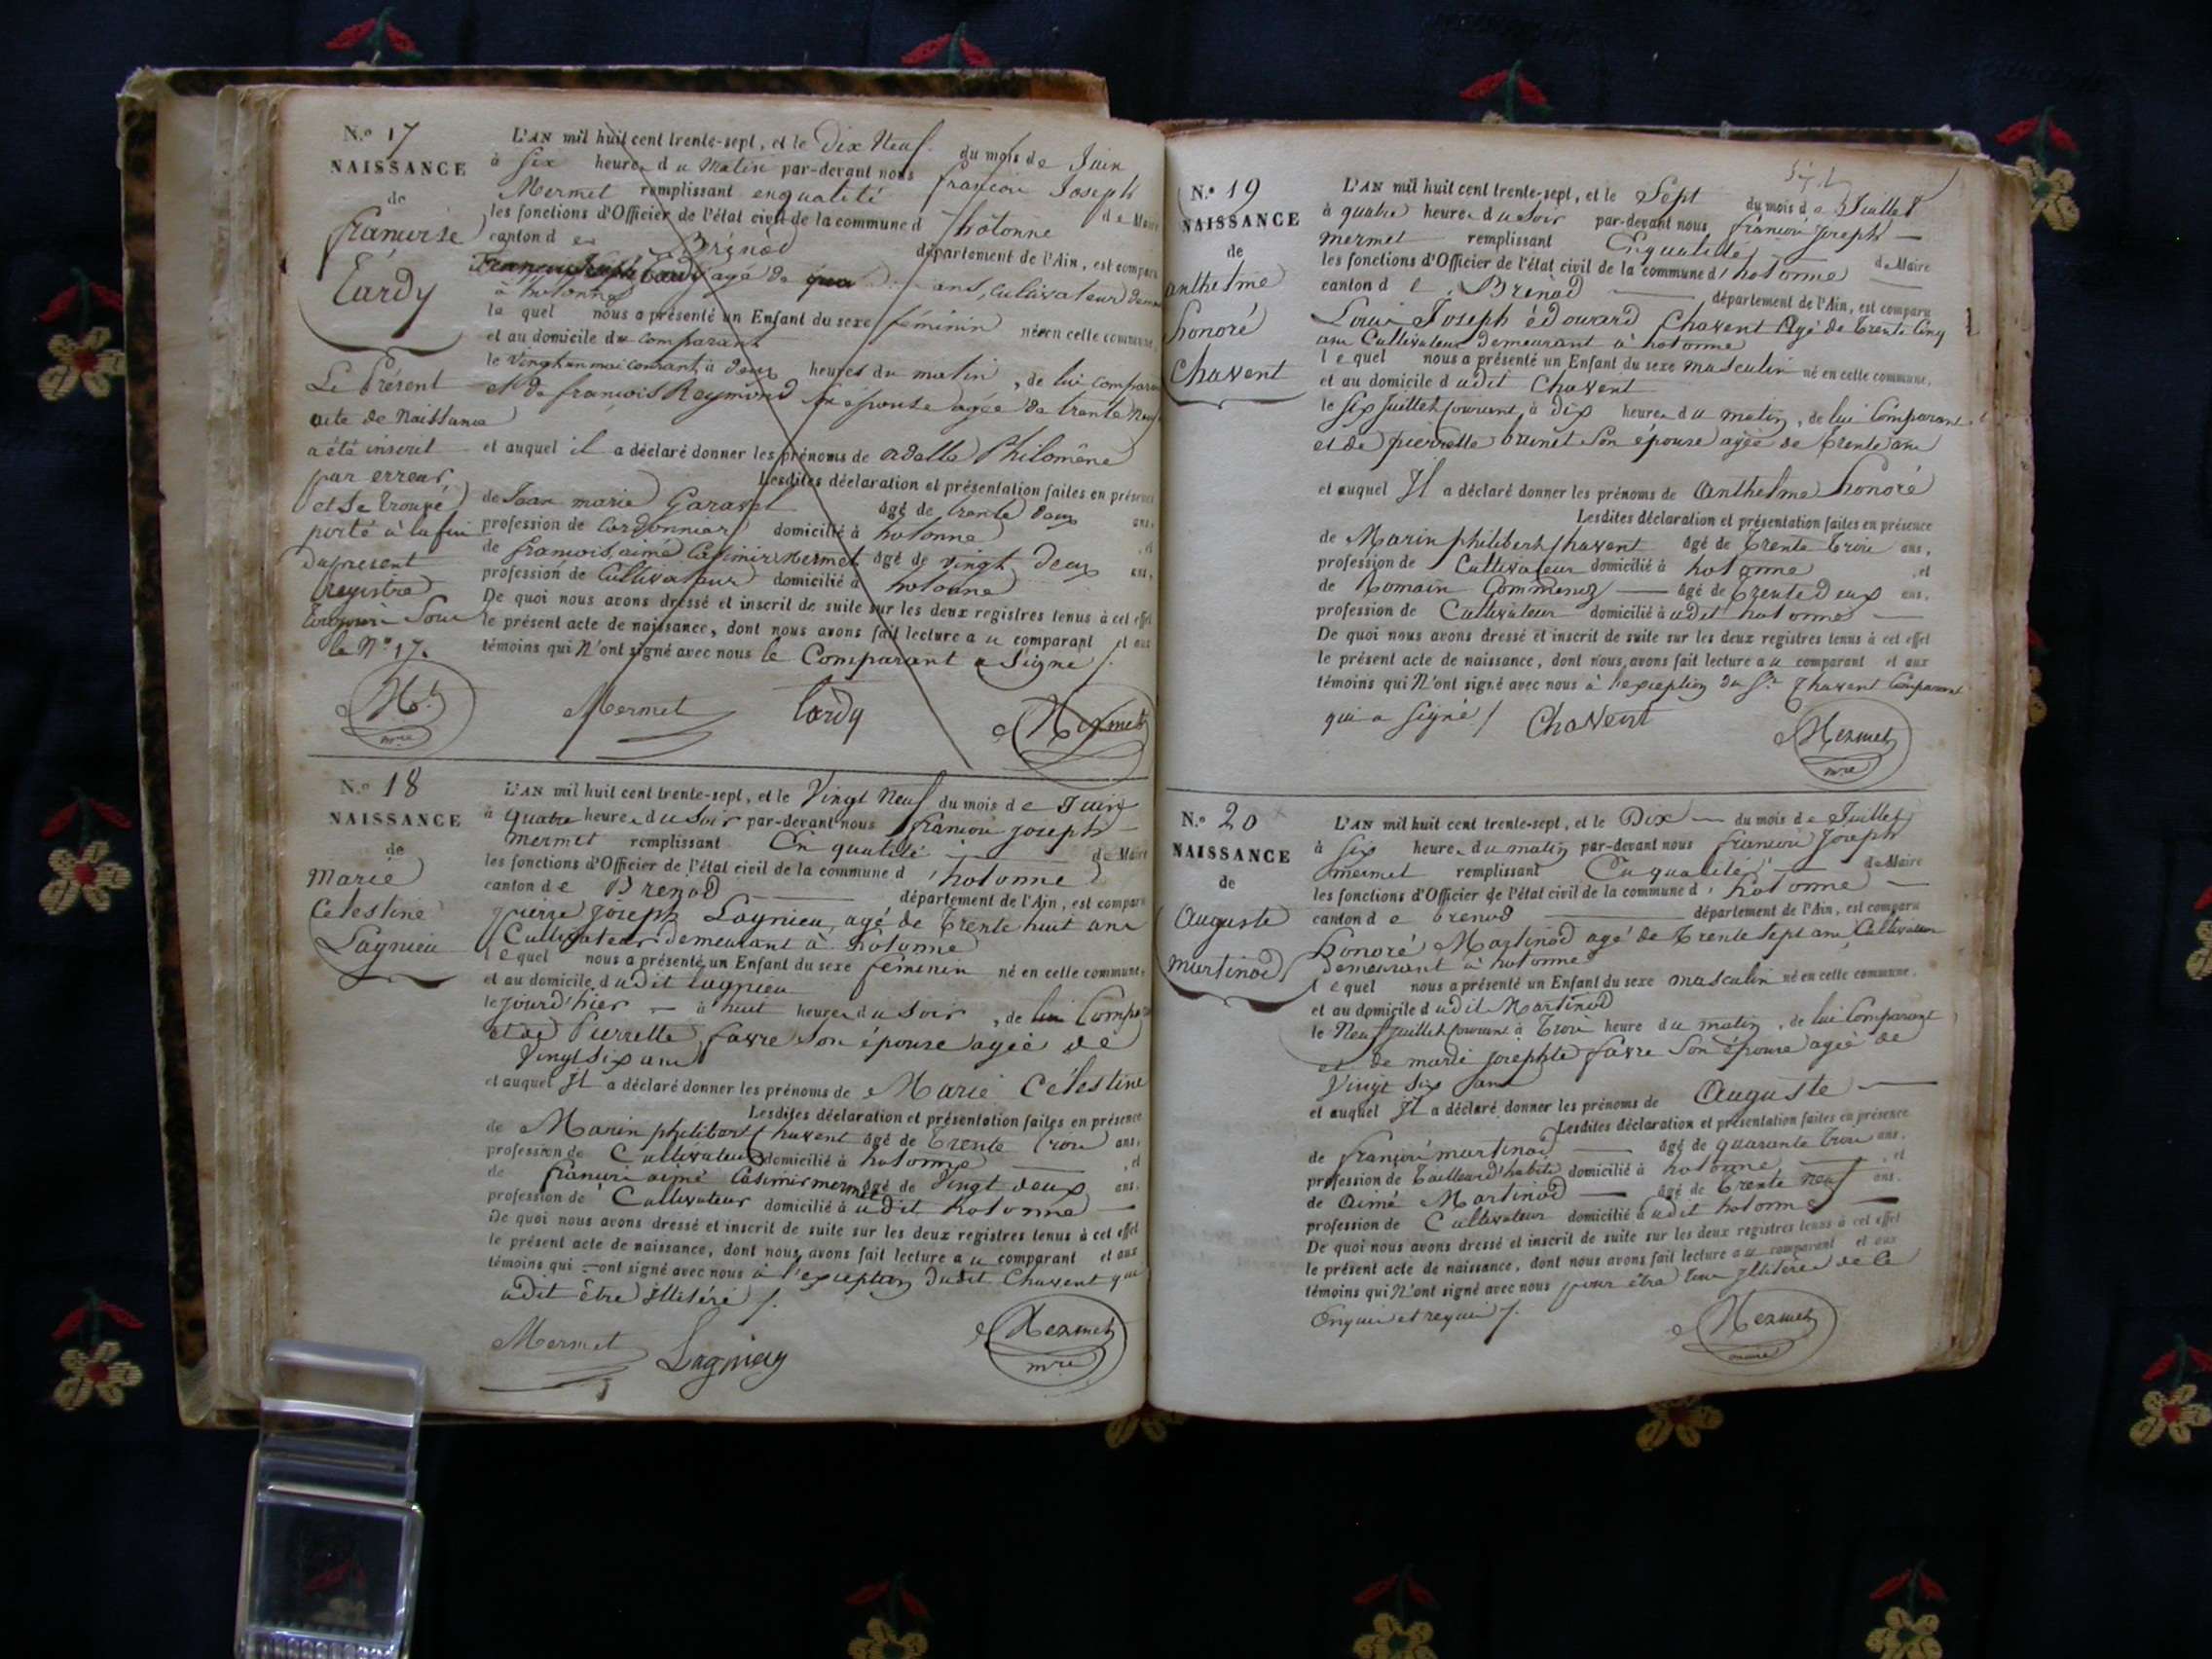 N.o 17
NAISSANCE
de
françoise
Tardy
Le Présent
acte de Naissance
a été inscrit
par erreur
et se trouve
porté à la fin
du present
Registre
Sous
le N.o 17.
L'AN mil huit cent trente-sept, et le Dix Neuf du mois de Juin
à Six heures du Matin par-devant nous françois Joseph
Mermet remplissant en qualité de Maire
les fonctions d'Officier de l'état civil de la commune d'hotonne
canton de Brénod département de l'Ain, est comparu
agé de ans, Cultivateur
à hotonne
le quel nous a présenté un Enfant du sexe féminin né en cette commune,
et au domicile du comparant
le courant, à deux heures du matin, de lui comparant
et de françoise Reymond son épouse agée de trente Neuf
et auquel il a déclaré donner les prénoms de adelle Philomène
Lesdites déclaration et présentation faites en présence
de Jean marie Garavet âgé de trente deux ans,
profession de Cordonnier domicilié à hotonne, et
de françois aimé Casimir Mermet âgé de vingt deux ans,
profession de Cultivateur domicilié à hotonne
De quoi nous avons dressé et inscrit de suite sur les deux registres tenus à cet effet
le présent acte de naissance, dont nous avons fait lecture au comparant et aux
témoins qui N'ont signé avec nous le Comparant a Signé /.
Mermet tardy Mermet
N.o 18
NAISSANCE
de
Marie
Celestine
Lagnieu
L'AN mil huit cent trente-sept, et le Vingt Neuf du mois de Juin
à quatre heures du Soir par-devant nous françois joseph
mermet remplissant En qualité de Maire
les fonctions d'Officier de l'état civil de la commune d'hotonne
canton de Brenod département de l'Ain, est comparu
pierre joseph Lagnieu, agé de Trente huit ans
Cultivateur demeurant à hotonne
lequel nous a présenté un Enfant du sexe féminin né en cette commune,
et au domicile dudit Lagnieu
le jourd'hier à huit heures du Soir, de lui Comparant
et de Pierrette favre Son épouse agée de
Vingt six ans
et auquel Il a déclaré donner les prénoms de Marie Célestine
Lesdites déclaration et présentation faites en présence
de Marin philibert Chavent âgé de Trente trois ans,
profession de Cultivateur domicilié à hotonne, et
de françois aimé Casimir mermet âgé de Vingt deux ans,
profession de Cultivateur domicilié à udit hotonne
De quoi nous avons dressé et inscrit de suite sur les deux registres tenus à cet effet
le présent acte de naissance, dont nous avons fait lecture au comparant et aux
témoins qui ont signé avec nous à l'exception dudit Chavent qui
a dit être illitéré /.
Mermet Lagnieu Mermet
mre
N.o 19
NAISSANCE
de
anthelme
honoré
Chavent
L'AN mil huit cent trente-sept, et le Sept du mois de Juillet
à quatre heures du Soir par-devant nous françois Joseph
mermet remplissant En qualité de Maire
les fonctions d'Officier de l'état civil de la commune d'hotonne
canton de Brénod département de l'Ain, est comparu
Louis Joseph édouard Chavent Agé de Trente Cinq
ans Cultivateur demeurant à hotonne
lequel nous a présenté un Enfant du sexe masculin né en cette commune,
et au domicile dudit Chavent
le Six Juillet courant, à dix heures du matin, de lui Comparant
et de pierrette brunet Son épouse agée de Trente ans
et auquel Il a déclaré donner les prénoms de Anthelme honoré
Lesdites déclaration et présentation faites en présence
de Marin philibert Chavent âgé de Trente Trois ans,
profession de Cultivateur domicilié à hotonne, et
de Romain âgé de Trente deux ans,
profession de Cultivateur domicilié à udit hotonne
De quoi nous avons dressé et inscrit de suite sur les deux registres tenus à cet effet
le présent acte de naissance, dont nous avons fait lecture au comparant et aux
témoins qui N'ont signé avec nous à l'exception du Sr. Chavent Comparant
qui a Signé / Chavent Mermet
mre
N.o 20
NAISSANCE
de
Auguste
martinod
L'AN mil huit cent trente-sept, et le Dix du mois de Juillet
à Six heures du matin par-devant nous françois Joseph
mermet remplissant En qualité de Maire
les fonctions d'Officier de l'état civil de la commune d'hotonne
canton de brenod département de l'Ain, est comparu
honoré Martinod agé de Trente Sept ans, Cultivateur
demeurant à hotonne
lequel nous a présenté un Enfant du sexe masculin né en cette commune,
et au domicile dudit Martinod
le Neuf Juillet courant à Trois heure du matin, de lui Comparant
et de marie josephte favre Son épouse agée de
Vingt Six ans
et auquel Il a déclaré donner les prénoms de Auguste
Lesdites déclaration et présentation faites en présence
de françois martinod âgé de quarante Trois ans,
profession de Tailleur d'habits domicilié à hotonne, et
de Aimé Martinod âgé de Trente neuf ans,
profession de Cultivateur domicilié à udit hotonne
De quoi nous avons dressé et inscrit de suite sur les deux registres tenus à cet effet
le présent acte de naissance, dont nous avons fait lecture au comparant et aux
témoins qui N'ont signé avec nous pour être tous illitérés de ce
Enquis et requis /.
Mermet
maire